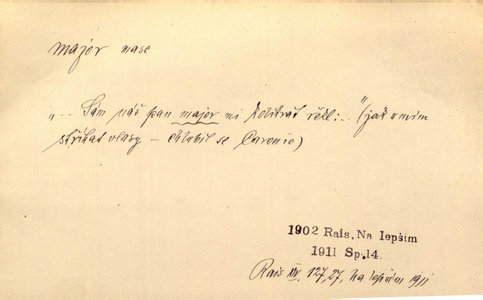 major masc
„.. Sám náš pan major mi kolikrát řekl:.." (jak umím
stříhat vlasy – chlubil se Caronio)
1902 Rais, Na lepším
1911 Sp.14.
Rais XIV, 127, 27, Na lepším 1911